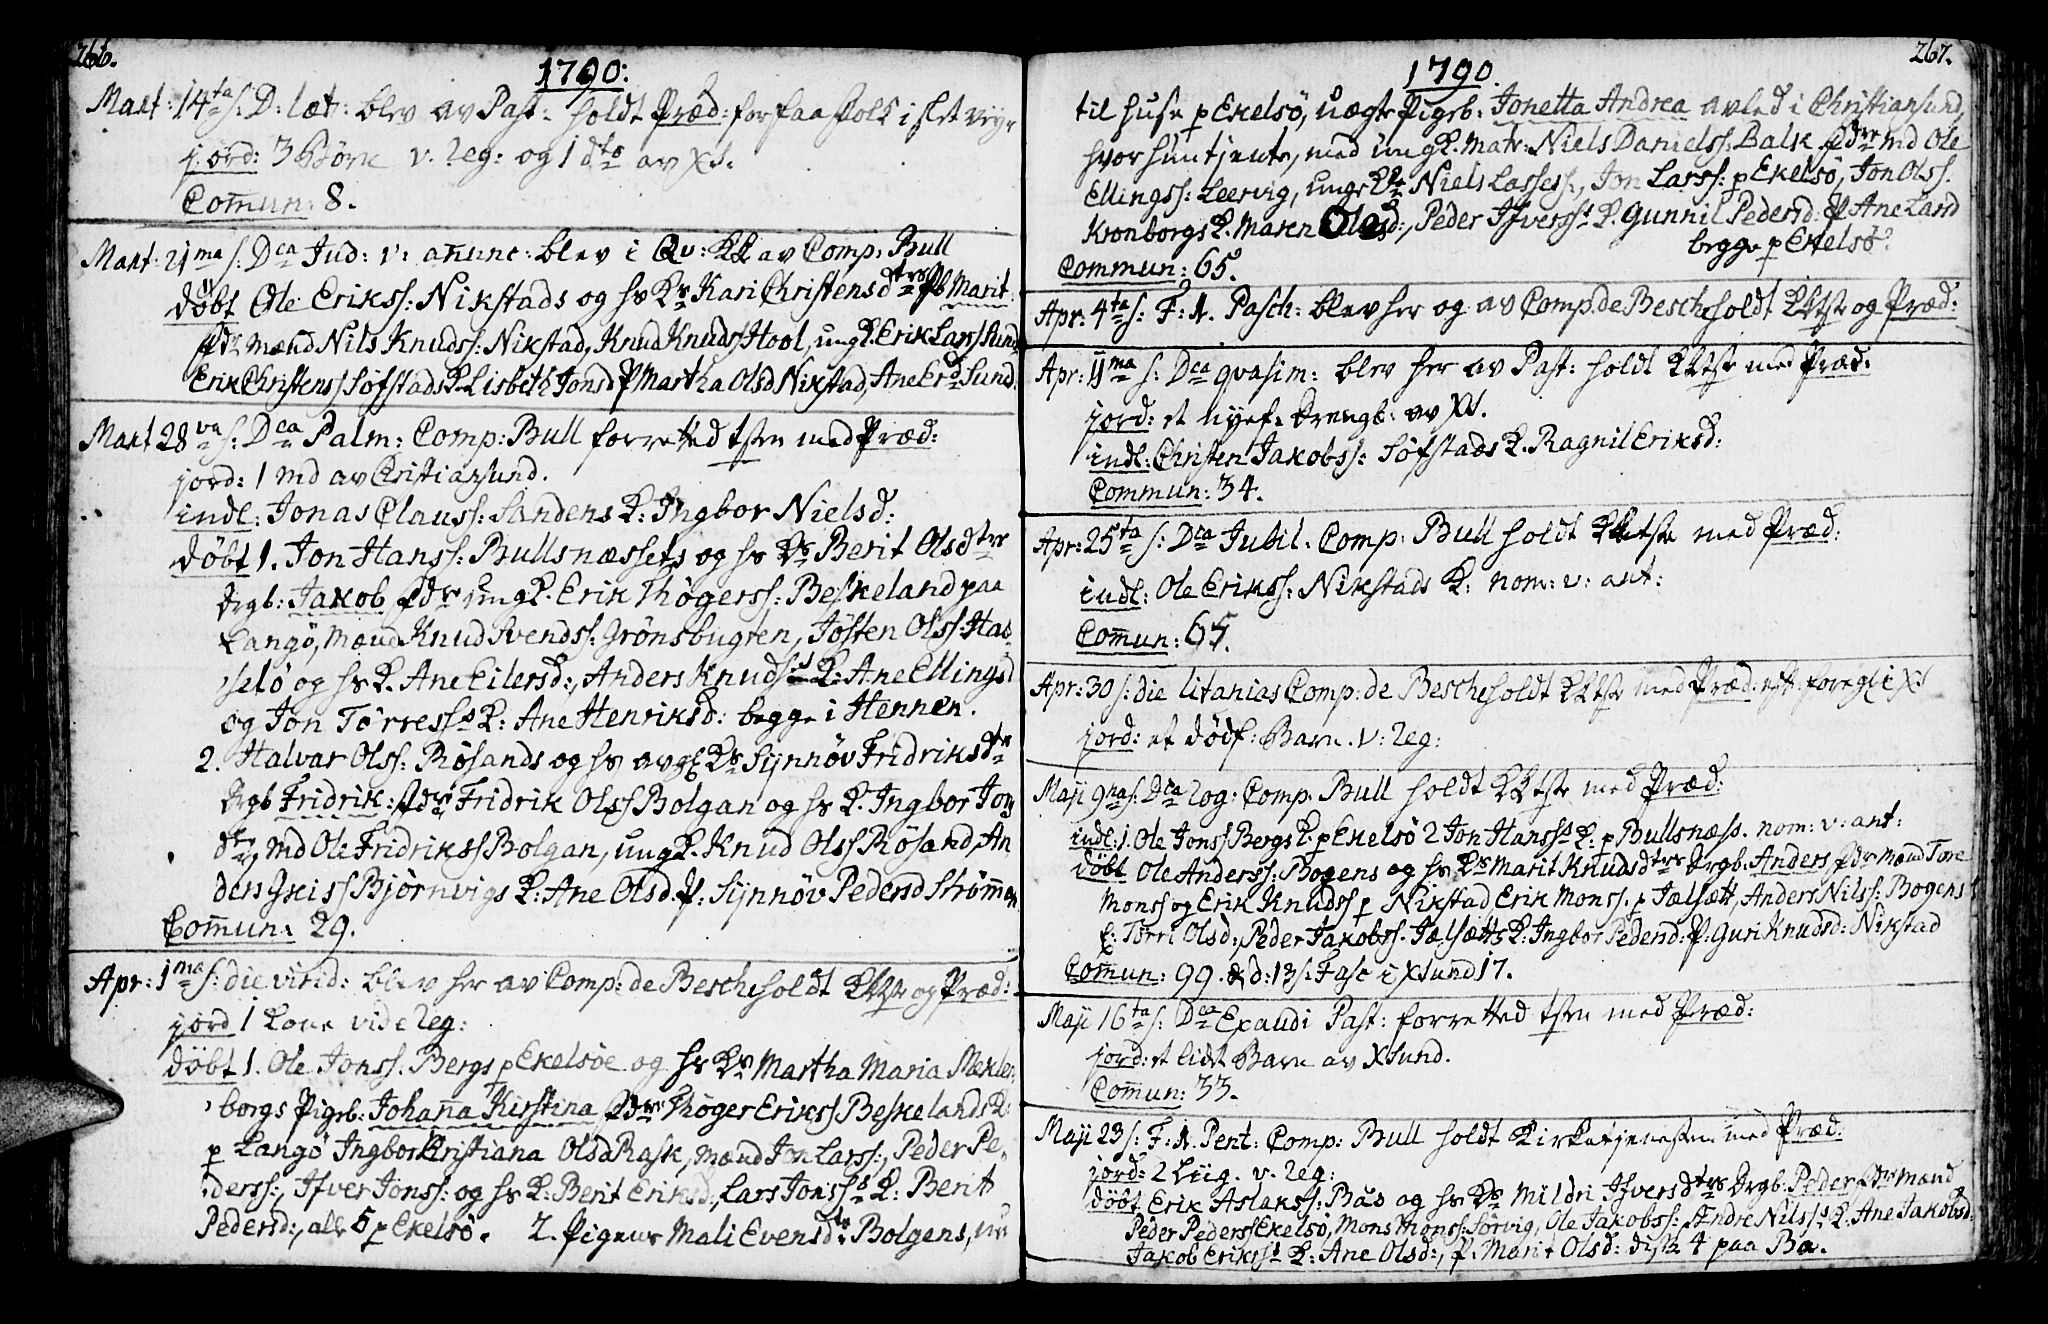 266.
1790:
Mart: 14ta s: D: læt: blev av Past: holdt Præd: for faa Folk i slet veyr
jord: 3 Börn v: reg: og 1 dto av XS.
Com̄un: 8.
Mart: 21ma s: Dca Jud: v: anunc: blev i Qv: KK av Comp: Bull
döbt Ole Erikss: Nikstads og hs Ks Kari Christensdtrs Pb Marit
fdr mænd Nils Knudss: Nikstad, Knud Knudss Hool, ungK. Erik Larss Sund
Erik Christenss Söfstads K. Lisbeth Jonsd P Martha Olsd Nikstad, Ane Erd Sund.
Mart 28va s: Dca Palm: Comp: Bull forretted tsten med Præd:
jord: 1 md av Christiansund.
indl: Jonas Clauss: Sandens K: Ingbor Nielsd:
döbt 1. Jon Hanss: Bullsnæssets og hs Ks Berit Olsdtrs
Drgb: Jakob fdr ungK. Erik Thögerss: Beskeland paa
Langö, mænd Knud Svendss: Grönsbugten, Jösten Olss: Has-
selö og hs K. Ane Eilersd:, Anders Knudss K: Ane Ellingsd
og Jon Törress K: Ane Henriksd: begge i Hennen.
2. Halvar Olss: Rösands og hs avg: Ks Synnöv Fridriksdtrs
Drgb Fridrik: fdr Fridrik Olss Bolgan og hs K. Ingbor Jons
dtr, md Ole Fridrikss Bolgan, ungK. Knud Olss Rösand, An
ders Greiss Björnvigs K: Ane Olsd. P. Synnöv Pedersd Ström̄en
Com̄un: 29.
Apr: 1ma s: die virid: blev her av Comp: de Besche holdt KKtste og Præd:
jord 1 Kone vide reg:
döbt 1. Ole Jonss. Bergs p Ekelsöe og hs Ks Martha Maria Meklen-
borgs Pigeb: Johan̄a Kirstina fdr Thöger Erikss Beskelands K:
p Langö Ingbor Kristiana Olsd Rask, mænd Jon Larss:, Peder Pe-
derss:, Ifver Jonss: og hs K: Berit Eriksd:, Lars Jonss K: Berit
Pedersd:, alle 5 p Ekelsö. 2. Pigens Mali Evensdtrs Bolgens, nu
267.
1790
til huse p Ekelsö, uægte Pigeb: Jonetta Andrea avled i Christiansund,
hvor hun tjente, med ungK. Matr: Niels Danielss: Balk fdre md Ole
Ellingss: Leervig, unge Kle Niels Lassess:, Jon Larss: p Ekelsö, Jon Olss.
Kronborgs K. Maren Olesd:, Peder Ifverss K. Gunnil Pedersd: P Ane Land
begge p Ekelsö
Commun: 65.
Apr: 4ta s: F: 1. Pasch: blev her og av Comp. de Besche holdt KKtste og Præd:
Apr: 11ma s: Dca qvasim: blev her av Past: holdt KKtste med Præd:
jord: et nyef: Drengb: av XS.
indl: Christen Jakobss: Söfstads K. Ragnil Eriksd:
Commun: 34.
Apr: 25ta s: Dca Jubil. Comp: Bull holdt KKtste med Præd:
indl: Ole Erikss: Nikstads K: nom: v: ant:
Com̄un: 65.
Apr: 30 s: die litanias Comp: de Besche holdt KKtste med Præd:
jord: et dödf: Barn. v: reg:
Maji 9na s: Dca rog: Comp: Bull holdt KKtste med Præd:
indl: 1. Ole Jonss Bergs K. p Ekelsö 2 Jon Hanss K: p Bullsnæss. nom: v: ant:
döbt Ole Anderss: Bogens og hs Ks Marit Knudsdtrs Drgb: Anders fdr mænd Tore
Monss og Erik Knudss p Nikstad Erik Monss. p Jælsætt, Anders Nilss: Bogens
E: Törri Olsd:, Peder Jakobss. Jælsætts K: Ingbor Pedersd: P: Guri Knudsd: Nikstad
Com̄un: 99. & d: 13 s: Fase i Xsund 17.
Maji 16ta s: Dca Exaudi Past: forretted tsten med Præd:
jord: et lidet Barn av Xsund.
Com̄un: 33.
Maji 23 s: F: 1. Pent: Comp: Bull holdt Kirketjenesten med Præd:
jord: 2 Liig. v: reg:
döbt Erik Aslakss: Bas og hs Ks Mildri Ifversdtrs Drgb: Peder fdr mænd
Peder Pederss Ekelsö, Mons Monss: Sörvig, Ole Jakobss:, Andre Nilss K. Ane Jakobsd:
Jakob Erikss K: Ane Olsd:, P: Marit Olsd: disse 4 paa Ba.